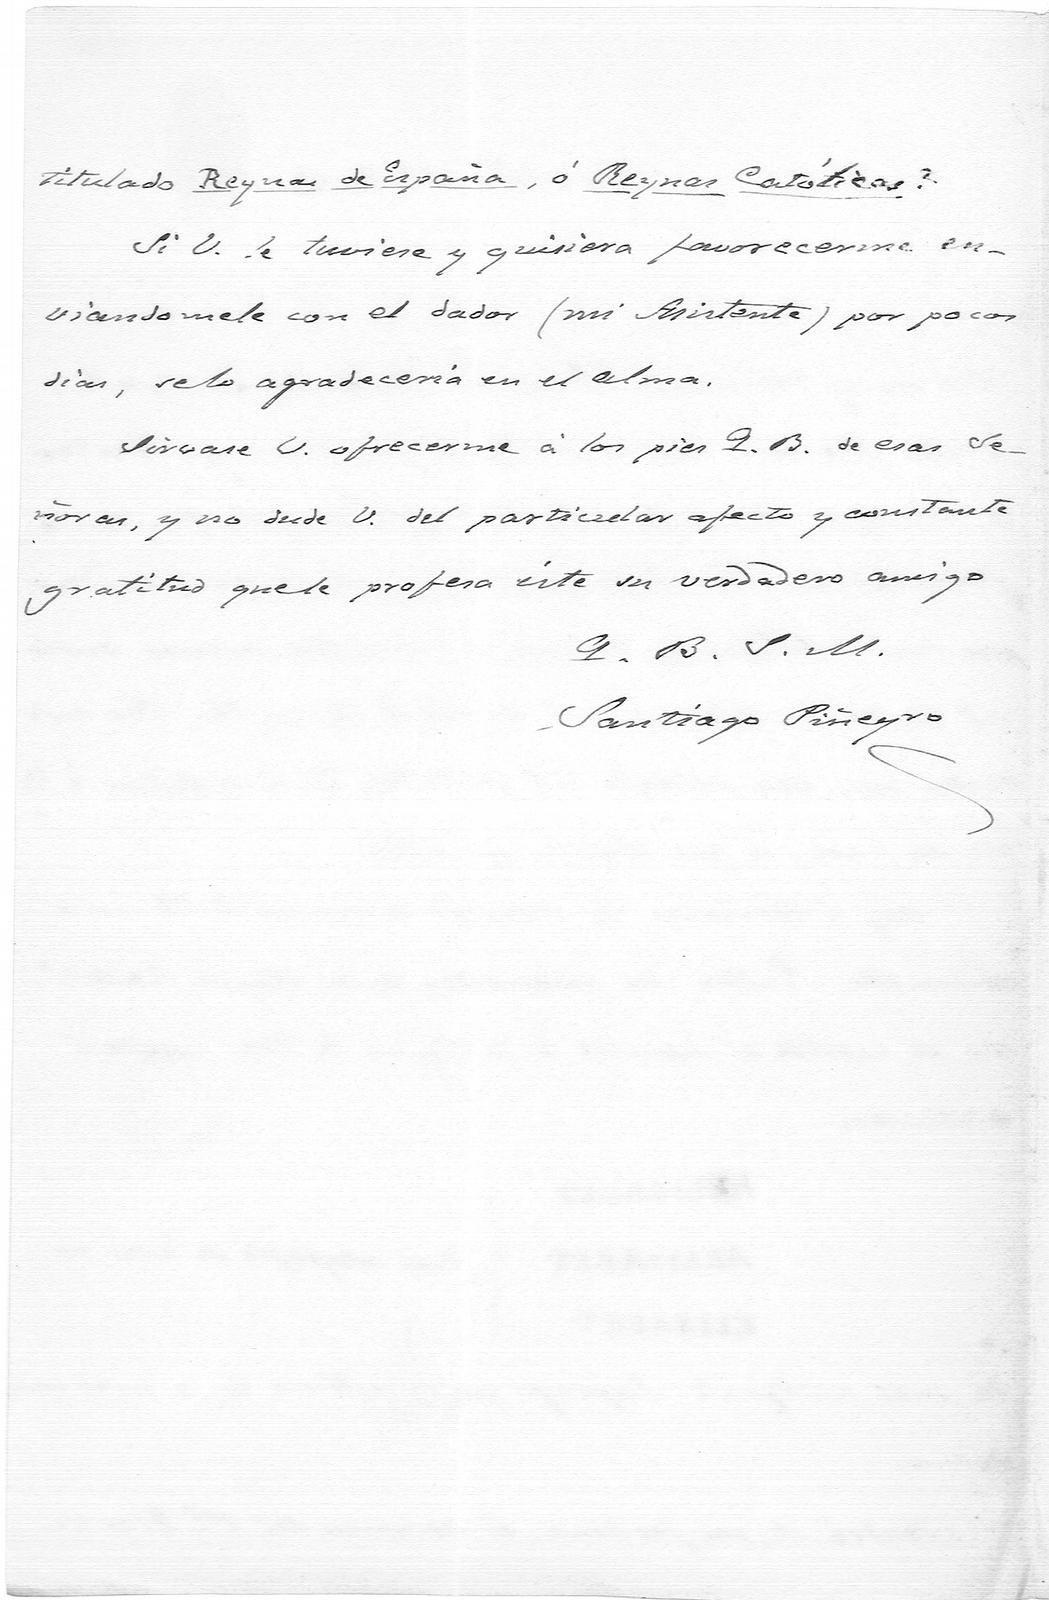 titulado Reynas de España, ó Reynas Católicas?
Si V. le tuviese y quisiera favorecerme en-
viandomele con el dador (mi Asistente) por pocos
dias, selo agradecería en el alma.
Sirvase V. ofrecerme á los pies Q. B. de esas Se-
ñoras, y no dude V. del particular afecto y constante
gratitud quele profesa éste su verdadero amigo
Q. B. S. M.
Santiago Piñeyro